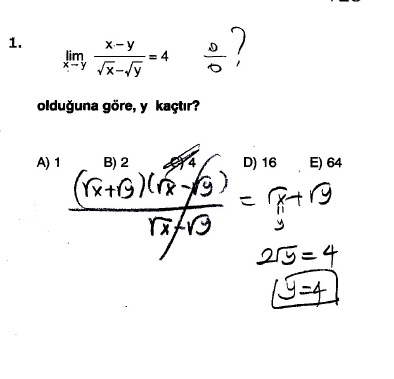 1.
lim x→y x-y / √x-√y = 4 0/0 ?
olduğuna göre, y kaçtır?
A) 1 B) 2 C) 4 D) 16 E) 64
(√x+√y)(√x-√y) / √x-√y = √x+√y
y
2√y = 4
y=4